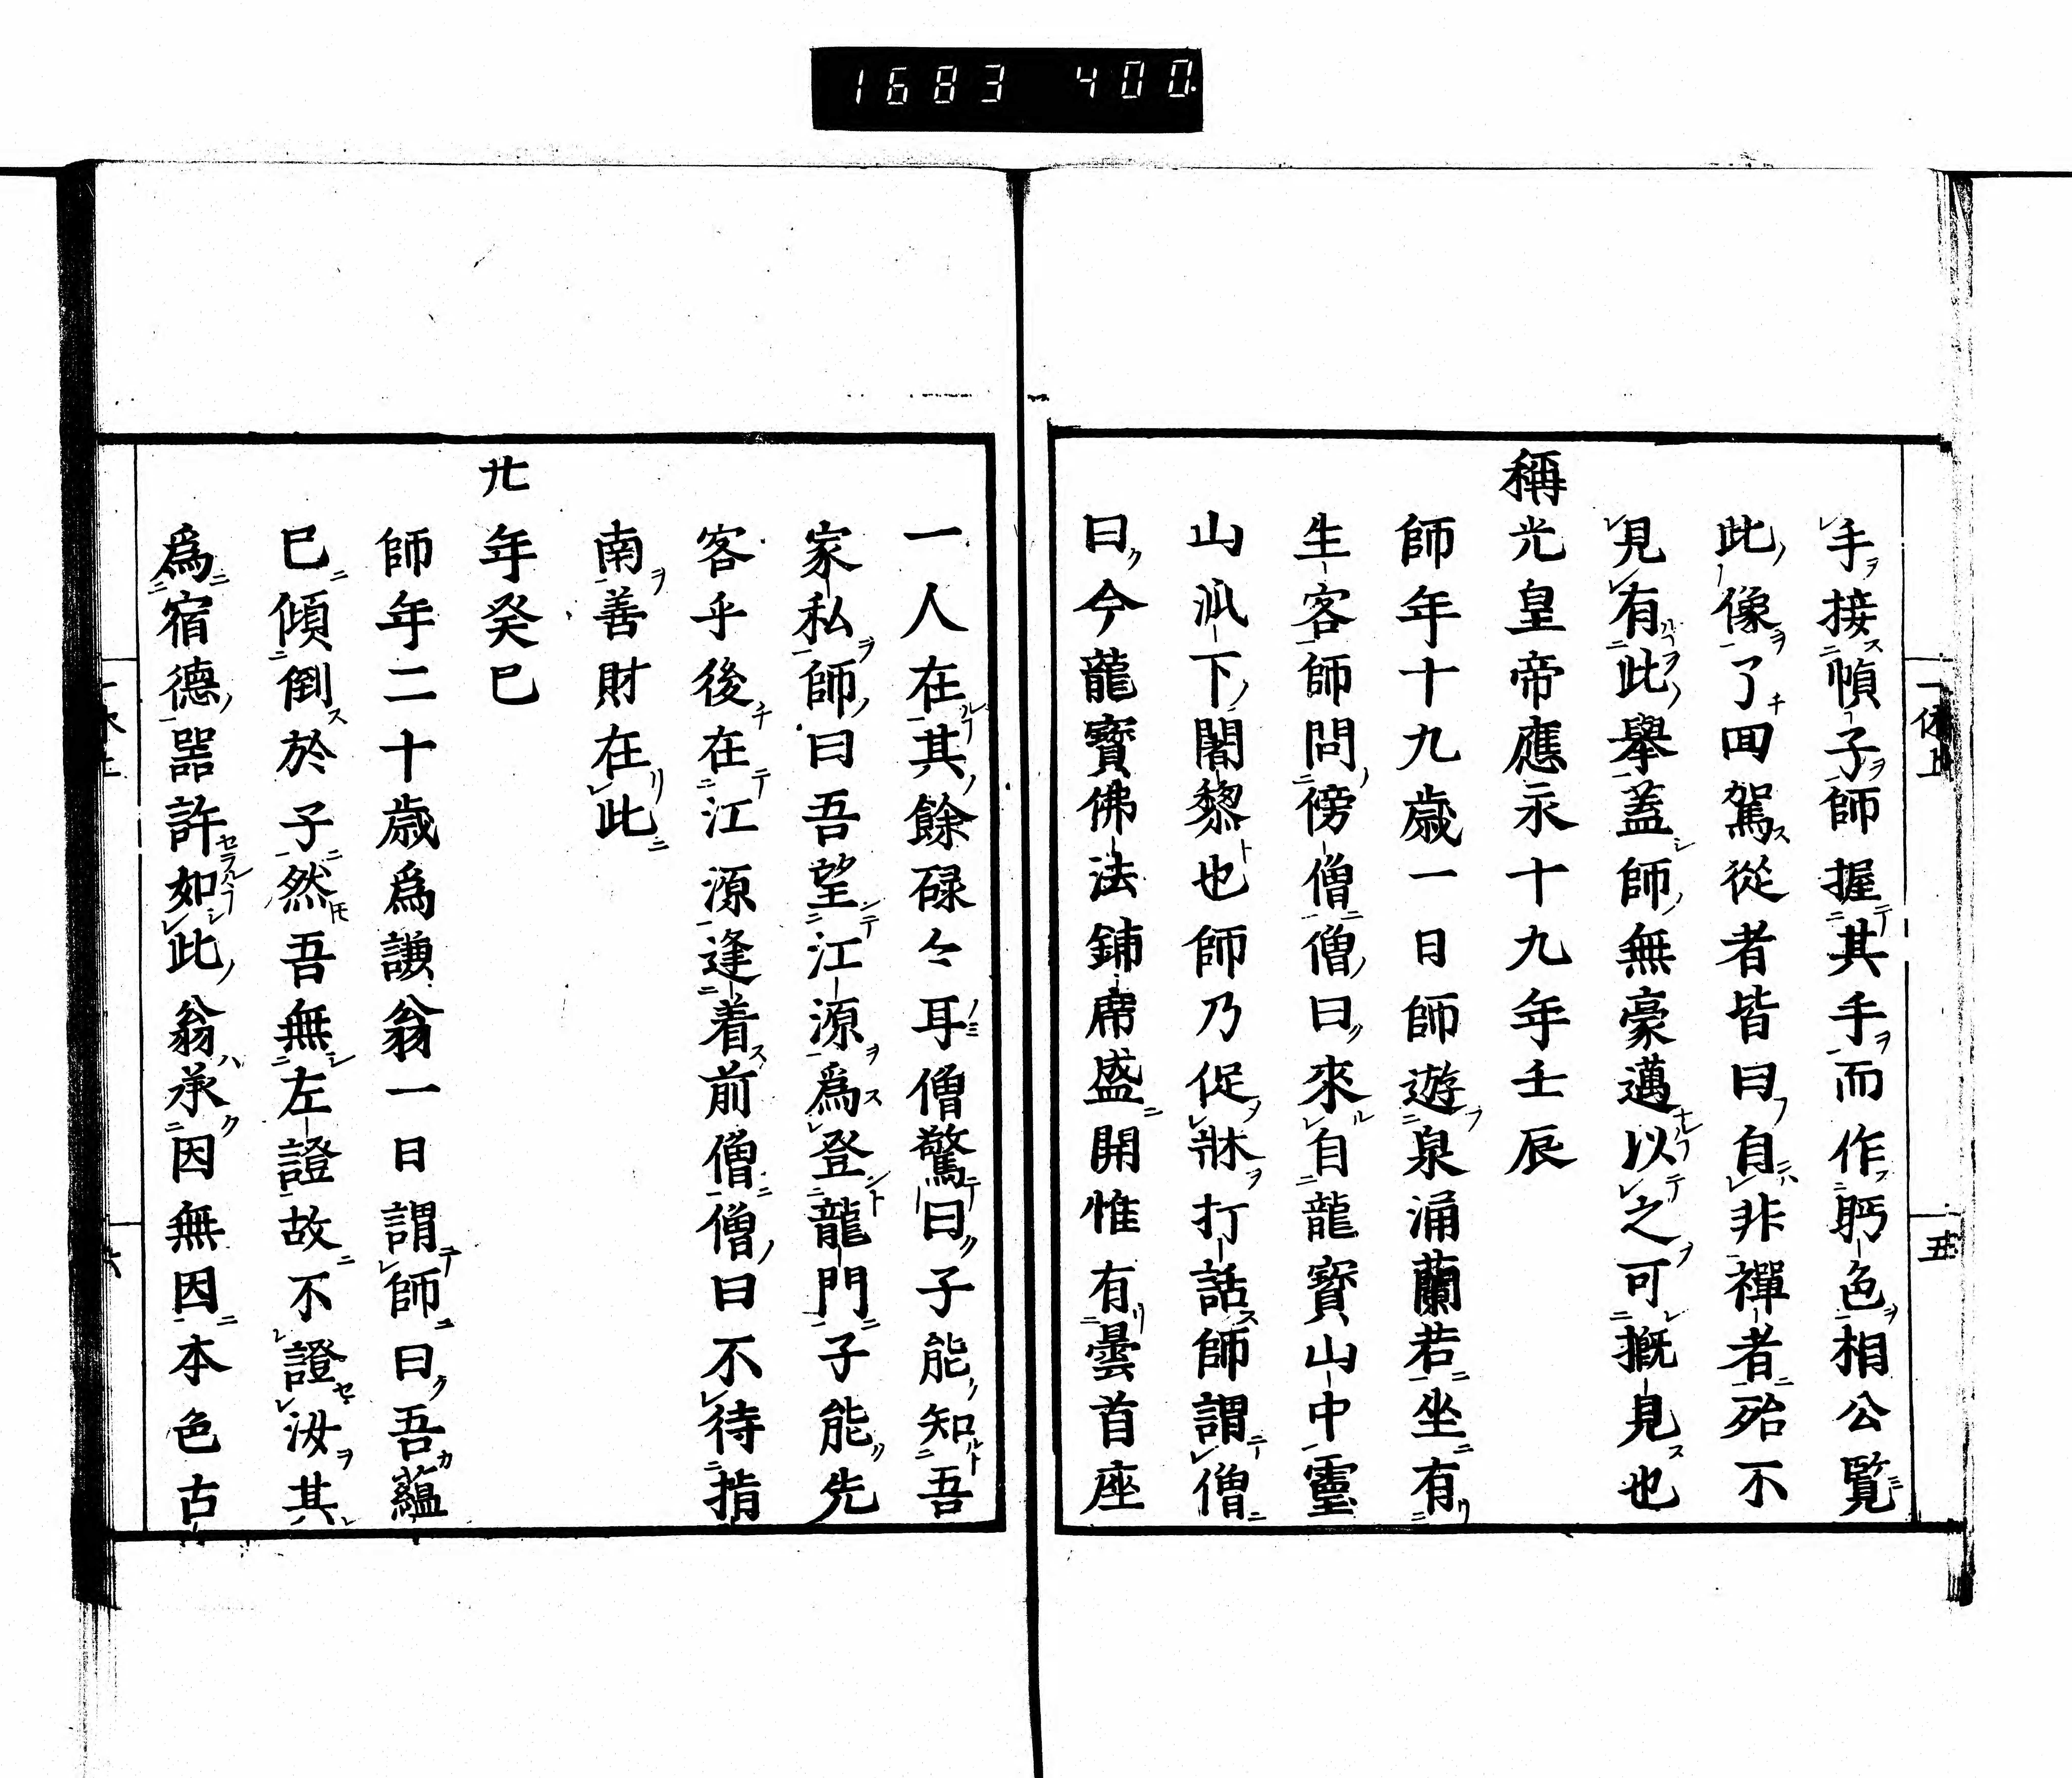 1683 400.
一休上
五
手接幀子師握其手而作眄色相公覧
此像了囬駕從者皆曰自非禪者殆不
見有此擧蓋師無豪邁以之可概見也
稱光皇帝應永十九年壬辰
師年十九歳一日師遊泉涌蘭若坐有
生客師問傍僧僧曰來自龍寳山中靈
山派下闍黎也師乃促牀打話師謂僧
曰今龍寳佛法鋪席盛開惟有曇首座
一人在其餘碌々耳僧驚曰子能知吾
家私師曰吾望江源爲登龍門子能先
客乎後在江源逢着前僧僧曰不待指
南善財在此
廿年癸巳
師年二十歳爲謙翁一日謂師曰吾蘊
已傾倒於子然吾無左證故不證汝其
爲宿德噐許如此翁承因無因本色古
六